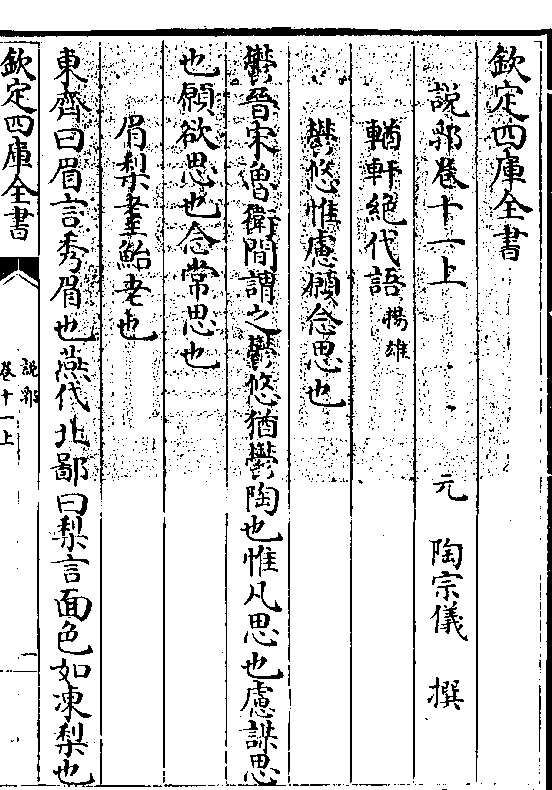 欽定四庫全書
說郛卷十一上
元 陶宗儀 撰
輶軒絕代語 揚雄
鬱悠惟慮願念思也
鬱晉宋魯衛間謂之鬱悠猶鬱陶也惟凡思也慮謀思
也願欲思也念常思也
眉梨耋鮐老也
東齊曰眉言秀眉也燕代北鄙曰梨言面色如凍梨也
欽定四庫全書
說郛
卷十一上
一